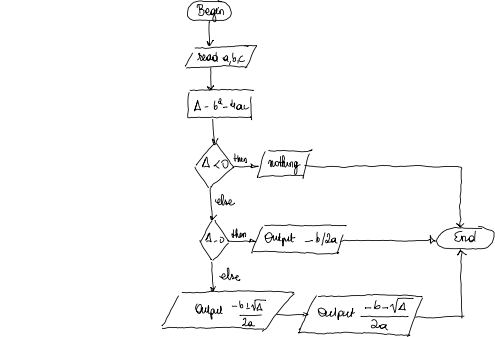 Begin
read a,b,c
Δ - b² - 4ac
Δ < 0
then
nothing
else
Δ = 0
then
Output -b/2a
End
else
Output (-b+√Δ)/2a
Output (-b-√Δ)/2a